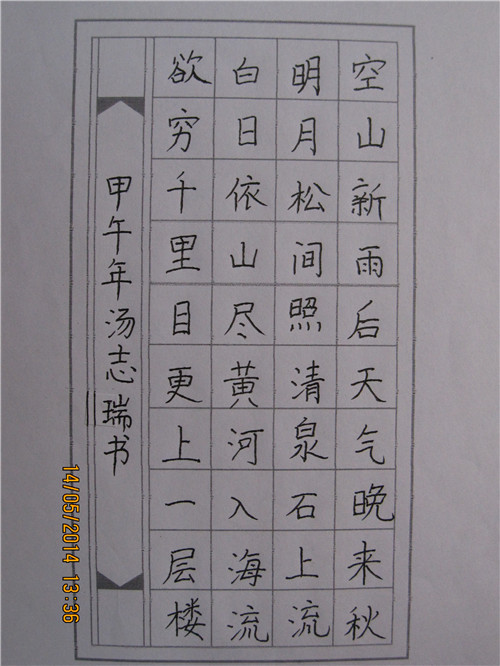 空山新雨后天气晚来秋
明月松间照清泉石上流
白日依山尽黄河入海流
欲穷千里目更上一层楼
甲午年汤志瑞书
14/05/2014 13:36